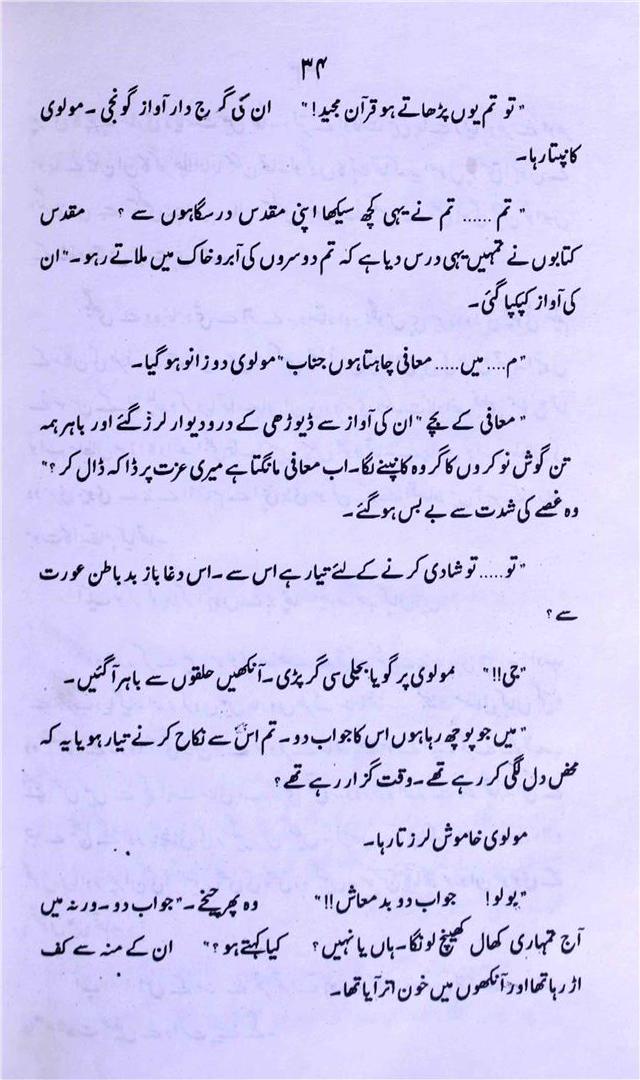 ۳۴
"تو تم یوں پڑھاتے ہو قرآن مجید!" ان کی گرج دار آواز گونجی۔ مولوی
کانپتا رہا۔
"تم ...... تم نے یہی کچھ سیکھا اپنی مقدس درسگاہوں سے؟ مقدس
کتابوں نے تمہیں یہی درس دیا ہے کہ تم دوسروں کی آبرو خاک میں ملاتے رہو۔" ان
کی آواز کپکپا گئی۔
"م.... میں..... معافی چاہتا ہوں جناب" مولوی دوزانو ہو گیا۔
"معافی کے بچے" ان کی آواز سے ڈیوڑھی کے در و دیوار لرز گئے اور باہر ہمہ
تن گوش نوکروں کا گروہ کانپنے لگا۔ اب معافی مانگتا ہے میری عزت پر ڈاکہ ڈال کر؟"
وہ غصے کی شدت سے بے بس ہو گئے۔
"تو..... تو شادی کرنے کے لئے تیار ہے اس سے۔ اس دغا باز بد باطن عورت
سے؟
"جی!!" مولوی پر گویا بجلی سی گر پڑی۔ آنکھیں حلقوں سے باہر آ گئیں۔
"میں جو پوچھ رہا ہوں اس کا جواب دو۔ تم اس سے نکاح کرنے تیار ہو یا یہ کہ
محض دل لگی کر رہے تھے۔ وقت گزار رہے تھے؟
مولوی خاموش لرزتا رہا۔
"بولو! جواب دو بدمعاش!!" وہ پھر چیخے۔ "جواب دو۔ ورنہ میں
آج تمہاری کھال کھینچ لونگا۔ ہاں یا نہیں؟ کیا کہتے ہو؟" ان کے منہ سے کف
اڑ رہا تھا اور آنکھوں میں خون اتر آیا تھا۔